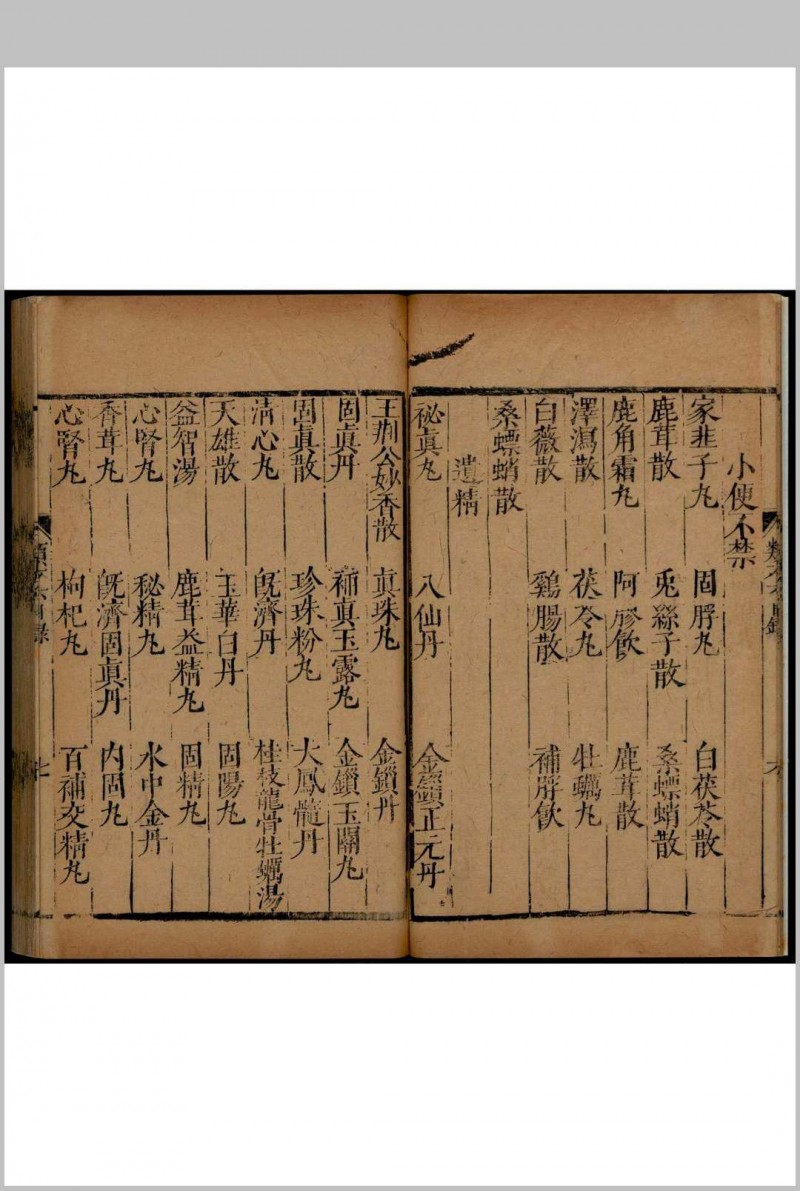 小便不禁
家韭子丸　固脬丸　白茯苓散
鹿茸散　兎絲子散　桑螵蛸散
鹿角霜丸　阿膠飲　鹿茸散
澤瀉散　茯苓丸　牡蠣丸
白薇散　鷄腸散　補脬飲
桑螵蛸散
遺精
秘真丸　八仙丹　金鎖正元丹
王荆公妙香散　真珠丸　金鎖丹
固真丹　補真玉露丸　金鎖玉關丸
固真散　珍珠粉丸　大鳳髓丹
清心丸　既濟丹　桂枝龍骨牡蠣湯
天雄散　玉華白丹　固陽丸
益智湯　鹿茸益精丸　固精丸
心腎丸　秘精丸　水中金丹
香茸丸　既濟固真丹　内固丸
心腎丸　枸杞丸　百補交精丸
目錄
七